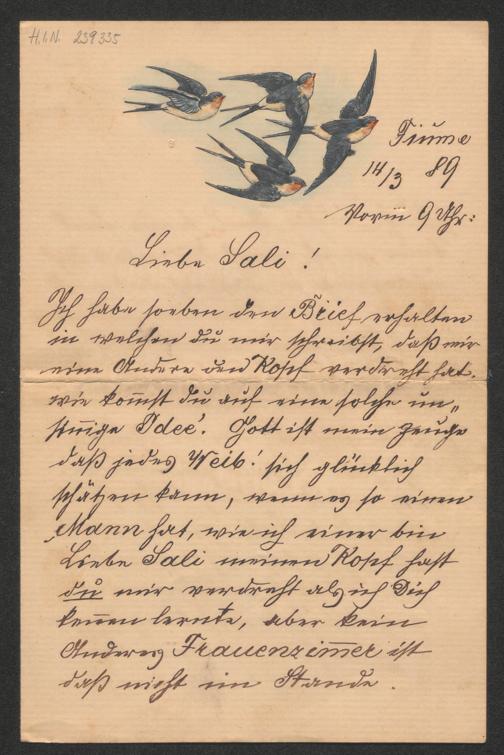 H.I.N. 239335
Fiume
14/3 89
Vorm 9 Uhr:
Liebe Sali!
Ich habe soeben den Brief erhalten
in welchen du mir schreibst, daß mir
eine Andere den Kopf verdreht hat.
wie kom̅st du auf eine solche un„
sinnige Idee'. Gott ist mein Zeuge
daß jedes Weib! sich glücklich
schätzen kann, wenn es so einen
Mann hat, wie ich einer bin
Liebe Sali meinen Kopf hast
du mir verdreht als ich Dich
kennen lernte, aber kein
Anderes Frauenzim̅er ist
daß nicht im Stande.